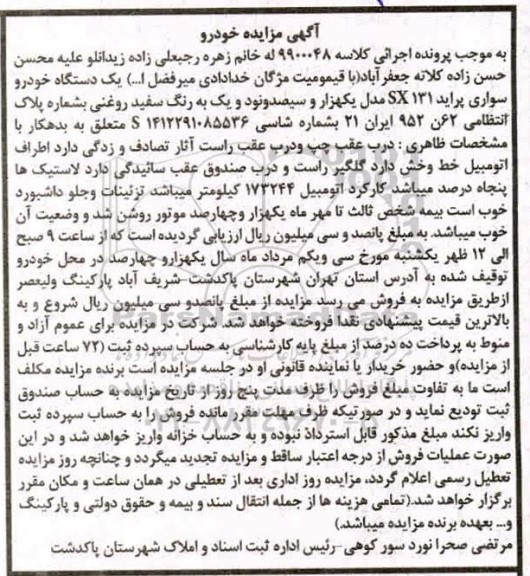 آگهی مزایده خودرو
به موجب پرونده اجرائی کلاسه ۹۹۰۰۰۴۸ له خانم زهره رجبعلی زاده زیدانلو علیه محسن
حسن زاده کلاته جعفرآباد(با قیمومیت مژگان خدادادی میرفضل ا...) یک دستگاه خودرو
سواری پراید SX ۱۳۱ مدل یکهزار و سیصدونود و یک به رنگ سفید روغنی بشماره پلاک
انتظامی ۶۲ن ۹۵۲ ایران ۲۱ بشماره شاسی S ۱۴۱۲۲۹۱۰۸۵۵۳۶ متعلق به بدهکار با
مشخصات ظاهری : درب عقب چپ ودرب عقب راست آثار تصادف و زدگی دارد اطراف
اتومبیل خط وخش دارد گلگیر راست و درب صندوق عقب سائیدگی دارد لاستیک ها
پنجاه درصد میباشد کارکرد اتومبیل ۱۷۳۲۴۴ کیلومتر میباشد تزئینات وجلو داشبورد
خوب است بیمه شخص ثالث تا مهر ماه یکهزار وچهارصد موتور روشن شد و وضعیت آن
خوب میباشد. به مبلغ پانصد و سی میلیون ریال ارزیابی گردیده است که از ساعت ۹ صبح
الی ۱۲ ظهر یکشنبه مورخ سی ویکم مرداد ماه سال یکهزارو چهارصد در محل خودرو
توقیف شده به آدرس استان تهران شهرستان پاکدشت-شریف آباد پارکینگ ولیعصر
ازطریق مزایده به فروش می رسد مزایده از مبلغ پانصدو سی میلیون ریال شروع و به
بالاترین قیمت پیشنهادی نقدا فروخته خواهد شد. شرکت در مزایده برای عموم آزاد و
منوط به پرداخت ده درصد از مبلغ پایه کارشناسی به حساب سپرده ثبت (۷۲ ساعت قبل
از مزایده)و حضور خریدار یا نماینده قانونی او در جلسه مزایده است برنده مزایده مکلف
است ما به تفاوت مبلغ فروش را ظرف مدت پنج روز از تاریخ مزایده به حساب صندوق
ثبت تودیع نماید و در صورتیکه ظرف مهلت مقرر مانده فروش را به حساب سپرده ثبت
واریز نکند مبلغ مذکور قابل استرداد نبوده و به حساب خزانه واریز خواهد شد و در این
صورت عملیات فروش از درجه اعتبار ساقط و مزایده تجدید میگردد و چنانچه روز مزایده
تعطیل رسمی اعلام گردد، مزایده روز اداری بعد از تعطیلی در همان ساعت و مکان مقرر
برگزار خواهد شد.(تمامی هزینه ها از جمله انتقال سند و بیمه و حقوق دولتی و پارکینگ
و... بعهده برنده مزایده میباشد.)
مرتضی صحرا نورد سور کوهی-رئیس اداره ثبت اسناد و املاک شهرستان پاکدشت